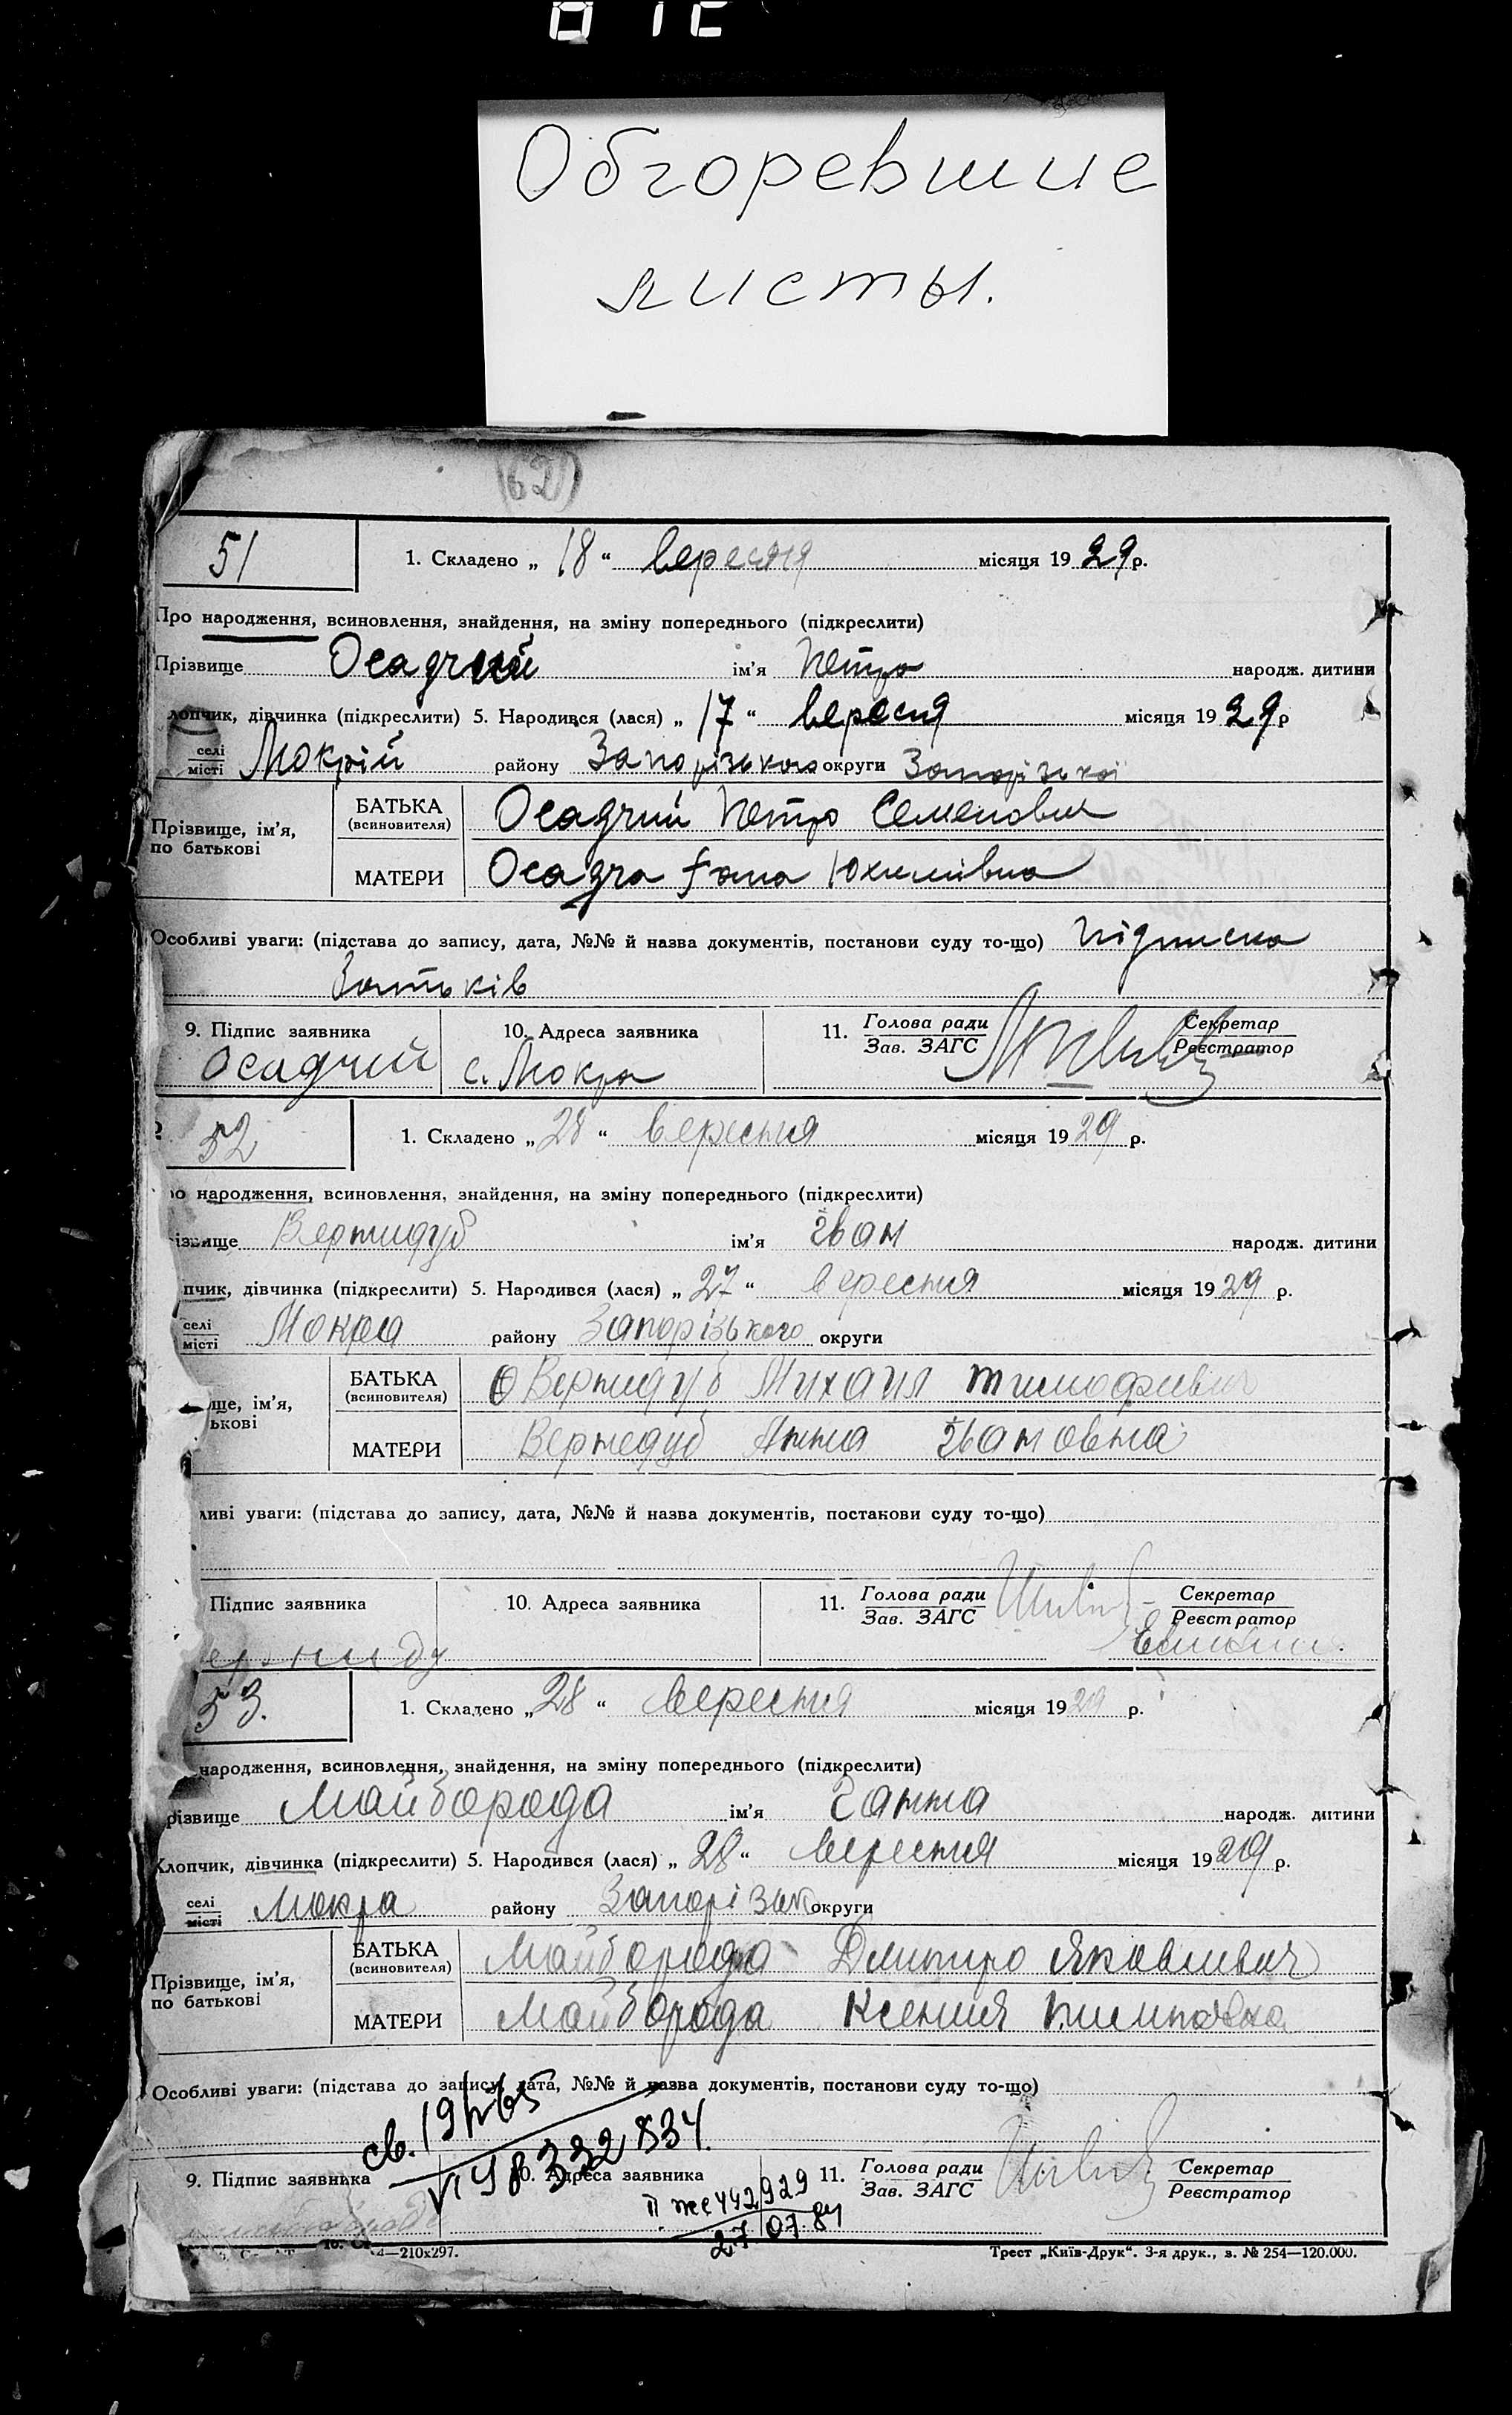 Обгоревшие
листы.
(62)
51
1. Складено „ 18 “ вересня місяця 19 29 р.
Про народження, всиновлення, знайдення, на зміну попереднього (підкреслити)
Прізвище Осадчий ім’я Петро народж. дитини
лопчик, дівчинка (підкреслити) 5. Народився (лася) „ 17 “ вересня місяця 19 29 р
селі
місті Мокрій району Запорізького округи Запорізької
Прізвище, ім’я,
по батькові
БАТЬКА
(всиновителя) Осадчий Петро Семенович
МАТЕРИ Осадча Ганна Юхимівна
Особливі уваги: (підстава до запису, дата, №№ й назва документів, постанови суду то-що) підписка
батьків
9. Підпис заявника 10. Адреса заявника 11. Голова ради Секретар
Зав. ЗАГС Реєстратор
Осадчий с. Мокра
52
1. Складено „ 28 “ вересня місяця 19 29 р.
ро народження, всиновлення, знайдення, на зміну попереднього (підкреслити)
різвище Вернидуб ім’я Іван народж. дитини
пчик, дівчинка (підкреслити) 5. Народився (лася) „ 27 “ вересня місяця 19 29 р.
селі
місті Мокра району Запорізького округи
ще, ім’я,
ькові
БАТЬКА
(всиновителя) Вернидуб Михаил Тимофиевич
МАТЕРИ Вернедуб Анна Івановна
ливі уваги: (підстава до запису, дата, №№ й назва документів, постанови суду то-що)
Підпис заявника 10. Адреса заявника 11. Голова ради Секретар
Зав. ЗАГС Реєстратор
ерниду
53.
1. Складено „ 28 “ вересня місяця 19 29 р.
народження, всиновлення, знайдення, на зміну попереднього (підкреслити)
різвище Майборода ім’я Ганна народж. дитини
Хлопчик, дівчинка (підкреслити) 5. Народився (лася) „ 28 “ вересня місяця 19 29 р.
селі
місті Мокра району Запорізьк округи
Прізвище, ім’я,
по батькові
БАТЬКА
(всиновителя) Майборода Дмитро Яковлевич
МАТЕРИ Майборода Ксения
Особливі уваги: (підстава до запису, дата, №№ й назва документів, постанови суду то-що)
9. Підпис заявника 10. Адреса заявника 11. Голова ради Секретар
Зав. ЗАГС Реєстратор
332834.
II же 442929
27 07. 84
—210х297. Трест „Київ-Друк“. 3-я друк., з. № 254—120.000.